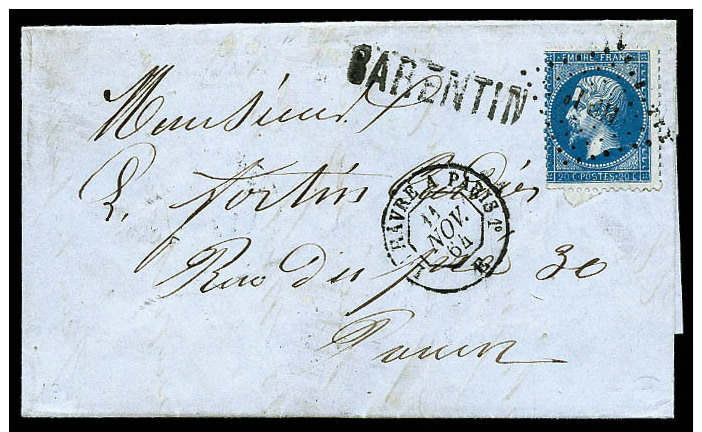 BARENTIN
EMPIRE FRANC
20 C POSTES 20 C
Monsieur
E. Fortin
HAVRE À PARIS 1°
11
NOV.
64
Rue du 30
Rouen